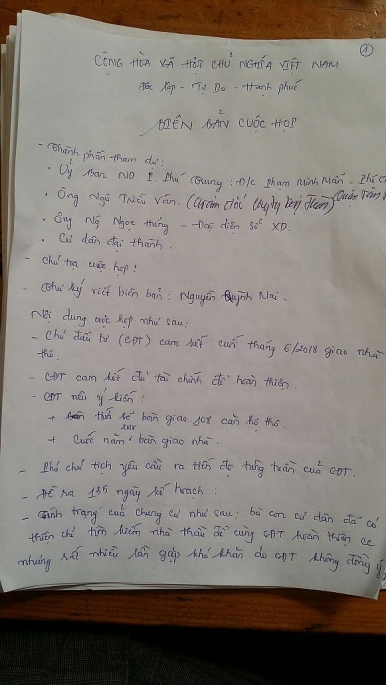 ①
CỘNG HÒA XÃ HỘI CHỦ NGHĨA VIỆT NAM
Độc lập - Tự Do - Hạnh phúc
BIÊN BẢN CUỘC HỌP
- Thành phần tham dự:
• Uỷ ban ND P. Phú Trung: Đ/c Phạm Minh Mẫn - Phó C
• Ông Ngô Triều Vân. (Giám đốc
• Ông Ng Ngọc Hưng - Đại diện Sở XD.
• Cư dân đại thành.
- Chủ trì cuộc họp:
- Thư ký viết biên bản: Nguyễn Quỳnh Mai.
Nội dung cuộc họp như sau:
- Chủ đầu tư (CĐT) cam kết cuối tháng 6/2018 giao nhà
thô.
- CĐT cam kết đủ tài chính để hoàn thiện.
- CĐT nêu ý kiến:
+ thứ bàn giao 108 căn hộ thô.
+ Cuối năm 2018 bàn giao nhà.
- Phó chủ tịch yêu cầu ra tiến độ từng tuần của CĐT.
- Đề ra 135 ngày kế hoạch:
- Tình trạng của chung cư như sau: bà con cư dân đã có
thiện chí tìm kiếm nhà thầu để cùng CĐT hoàn thiện cc
nhưng rất nhiều lần gặp khó khăn do CĐT không đồng ý